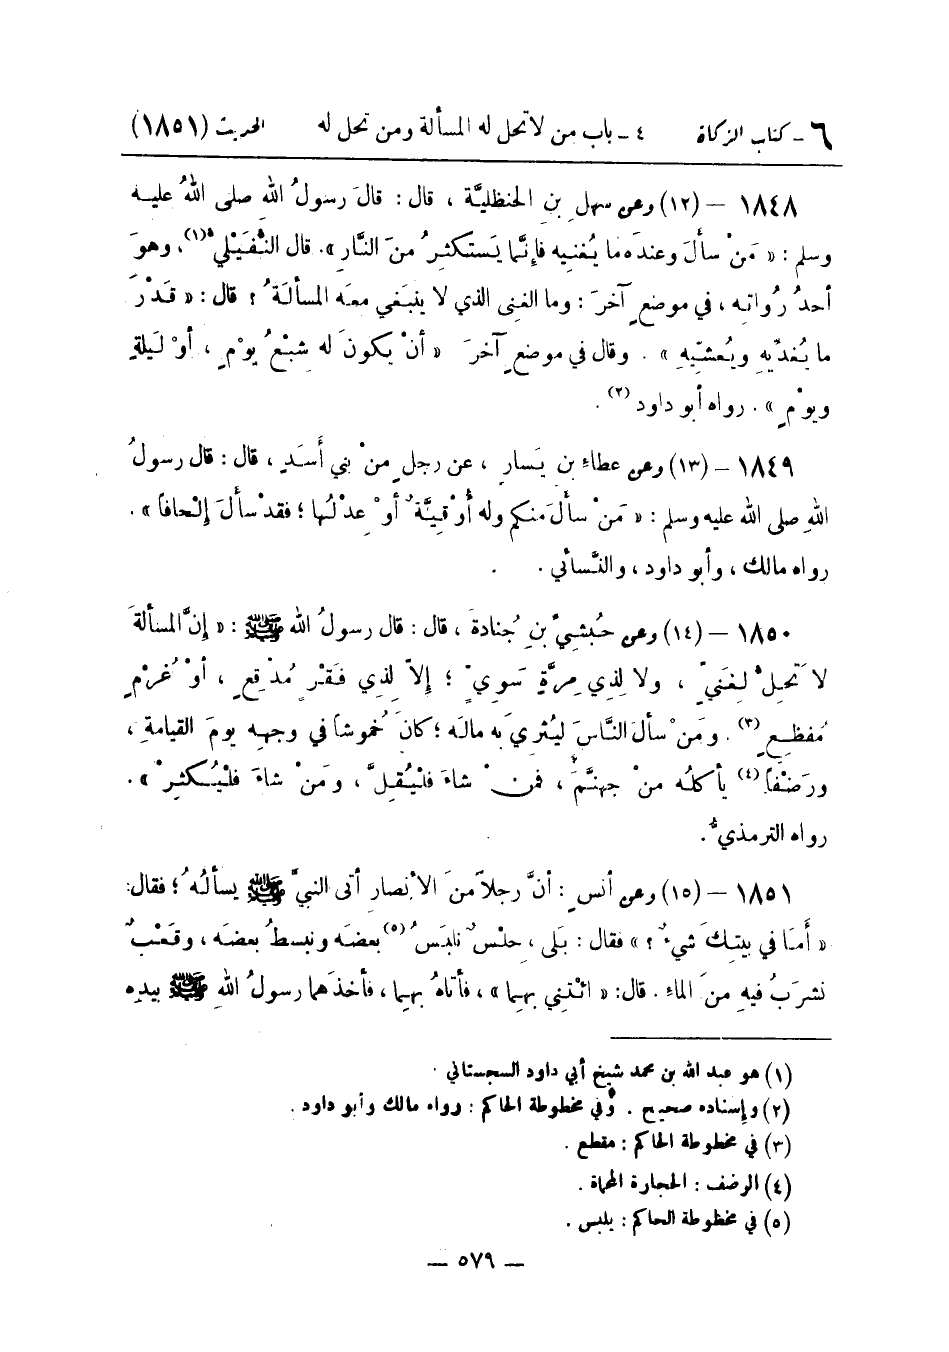 ٦ - كتاب الزكاة ٤ - باب من لا تحل له المسألة ومن تحل له الحديث (١٨٥١)
١٨٤٨ - (١٢) وعن سهلِ بنِ الحنظليَّة ، قال : قالَ رسولُ اللهِ صلى اللهُ عليه
وسلم : « مَنْ سألَ وعندَه ما يُغنيه فإنَّما يَستكثِرُ منَ النَّار ». قال النُّفَيْليُّ(١)، وهوَ
أحدُ رُواتِه ، في موضعٍ آخرَ : وما الغِنى الذي لا ينبغي معَه المسألةُ ؟ قال : « قَدْرَ
ما يُغدِّيهِ ويُعشِّيهِ » . وقال في موضعٍ آخرَ « أنْ يكونَ له شِبْعُ يومٍ ، أوْ لَيلةٍ
ويومٍ » . رواه أبو داود (٢) .
١٨٤٩ - (١٣) وعن عطاءِ بنِ يَسارٍ ، عن رجلٍ منْ بني أَسَدٍ ، قال : قال رسولُ
اللهِ صلى الله عليه وسلم : « مَنْ سألَ منكم وله أُوقِيَّةٌ أوْ عِدْلُها ؛ فقدْ سألَ إلْحافاً » .
رواه مالك ، وأبو داود ، والنَّسائي .
١٨٥٠ - (١٤) وعن حُبشِيِّ بنِ جُنادةَ ، قال : قال رسولُ الله ﷺ : « إنَّ المسألةَ
لا تَحِلُّ لِغَنيٍّ ، ولا لِذي مِرَّةٍ سَوِيٍّ ؛ إلاّ لِذي فَقْرٍ مُدْقِعٍ ، أوْ غُرْمٍ
مُفظِعٍ (٣) . ومَنْ سألَ النَّاسَ ليُثرِيَ به مالَه ؛ كانَ خُموشاً في وجهِه يومَ القيامةِ ،
ورَضْفاً (٤) يأكلُه منْ جهنَّمَ ، فمنْ شاءَ فلْيُقِلَّ ، ومَنْ شاءَ فلْيُكثِرْ » .
رواه الترمذيُّ .
١٨٥١ - (١٥) وعن أنسٍ : أنَّ رجلاً منَ الأنصارِ أتى النبيَّ ﷺ يسألُهُ ؛ فقال:
« أَمَا في بيتِكَ شيءٌ ؟ » فقال : بَلى ، حِلْسٌ نلبَسُ (٥) بعضَه ونبسطُ بعضَه ، وقَعْبٌ
نشرَبُ فيهِ منَ الماءِ . قال: « ائتِني بهِما » ، فأتاهُ بهِما ، فأخذَهما رسولُ اللهِ ﷺ بيدِه
(١) هو عبد الله بن محمد شيخ أبي داود السجستاني .
(٢) وإسناده صحيح . وفي مخطوطة الحاكم : رواه مالك وأبو داود .
(٣) في مخطوطة الحاكم : مقطع .
(٤) الرضف : الحجارة المحماة .
(٥) في مخطوطة الحاكم : يلبس .
— ٥٧٩ —